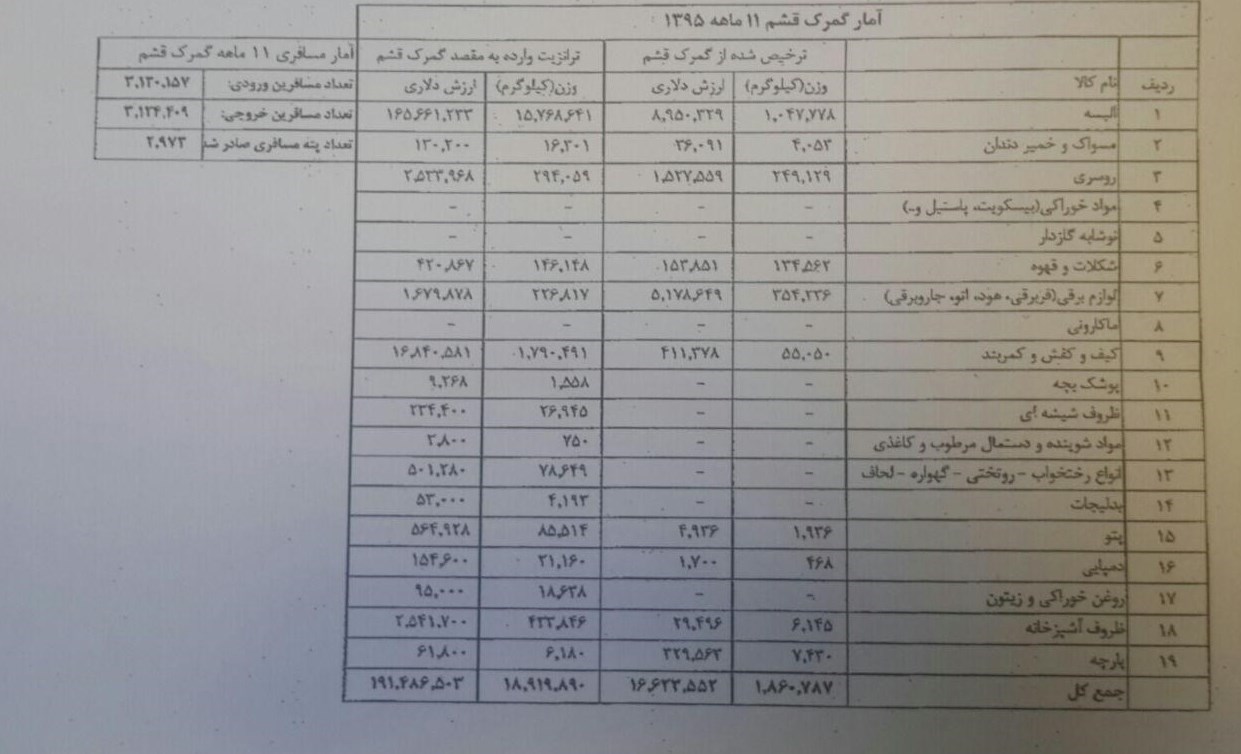 آمار گمرک قشم ۱۱ ماهه ۱۳۹۵
ترخیص شده از گمرک قشم ترانزیت وارده به مقصد گمرک قشم
ردیف نام کالا وزن(کیلوگرم) ارزش دلاری وزن(کیلوگرم) ارزش دلاری
۱ البسه ۱,۰۴۷,۷۷۸ ۸,۹۵۰,۳۲۹ ۱۵,۷۶۸,۶۴۱ ۱۶۵,۶۶۱,۲۳۳
۲ مسواک و خمیر دندان ۴,۰۵۳ ۳۶,۰۹۱ ۱۶,۳۰۱ ۱۳۰,۲۰۰
۳ روسری ۲۴۹,۱۲۹ ۱,۵۲۷,۵۵۹ ۲۹۴,۰۵۹ ۲,۵۳۳,۹۶۸
۴ مواد خوراکی(بیسکویت، پاستیل و..) - - - -
۵ نوشابه گازدار - - - -
۶ شکلات و قهوه ۱۳۴,۵۶۲ ۱۵۳,۸۵۱ ۱۴۶,۱۴۸ ۴۲۰,۸۶۷
۷ لوازم برقی(فربرقی، هود، اتو، جاروبرقی) ۳۵۴,۲۳۶ ۵,۱۷۸,۶۴۹ ۲۲۶,۸۱۷ ۱,۶۷۹,۸۷۸
۸ ماکارونی - - - -
۹ کیف و کفش و کمربند ۵۵,۰۵۰ ۴۱۱,۳۷۸ ۱,۷۹۰,۴۹۱ ۱۶,۸۴۰,۵۸۱
۱۰ پوشک بچه - - ۱,۵۵۸ ۹,۲۶۸
۱۱ ظروف شیشه ای - - ۲۶,۹۴۵ ۲۳۴,۴۰۰
۱۲ مواد شوینده و دستمال مرطوب و کاغذی - - ۷۵۰ ۳,۸۰۰
۱۳ انواع رختخواب - روتختی - گهواره - لحاف - - ۷۸,۶۴۹ ۵۰۱,۲۸۰
۱۴ بدلیجات - - ۴,۱۹۳ ۵۳,۰۰۰
۱۵ پتو ۱,۹۳۶ ۴,۹۳۶ ۸۵,۵۱۴ ۵۶۴,۹۲۸
۱۶ دمپایی ۴۶۸ ۱,۷۰۰ ۲۱,۱۶۰ ۱۵۴,۶۰۰
۱۷ روغن خوراکی و زیتون - - ۱۸,۶۳۸ ۹۵,۰۰۰
۱۸ ظروف آشپزخانه ۶,۱۴۵ ۲۹,۴۹۶ ۴۳۳,۸۴۶ ۲,۵۴۱,۷۰۰
۱۹ پارچه ۷,۴۳۰ ۳۲۹,۵۶۳ ۶,۱۸۰ ۶۱,۸۰۰
جمع کل ۱,۸۶۰,۷۸۷ ۱۶,۶۲۳,۵۵۲ ۱۸,۹۱۹,۸۹۰ ۱۹۱,۴۸۶,۵۰۳
آمار مسافری ۱۱ ماهه گمرک قشم
تعداد مسافرین ورودی: ۳,۱۳۰,۱۵۷
تعداد مسافرین خروجی: ۳,۱۲۴,۴۰۹
تعداد پته مسافری صادر شد ۲,۹۷۳